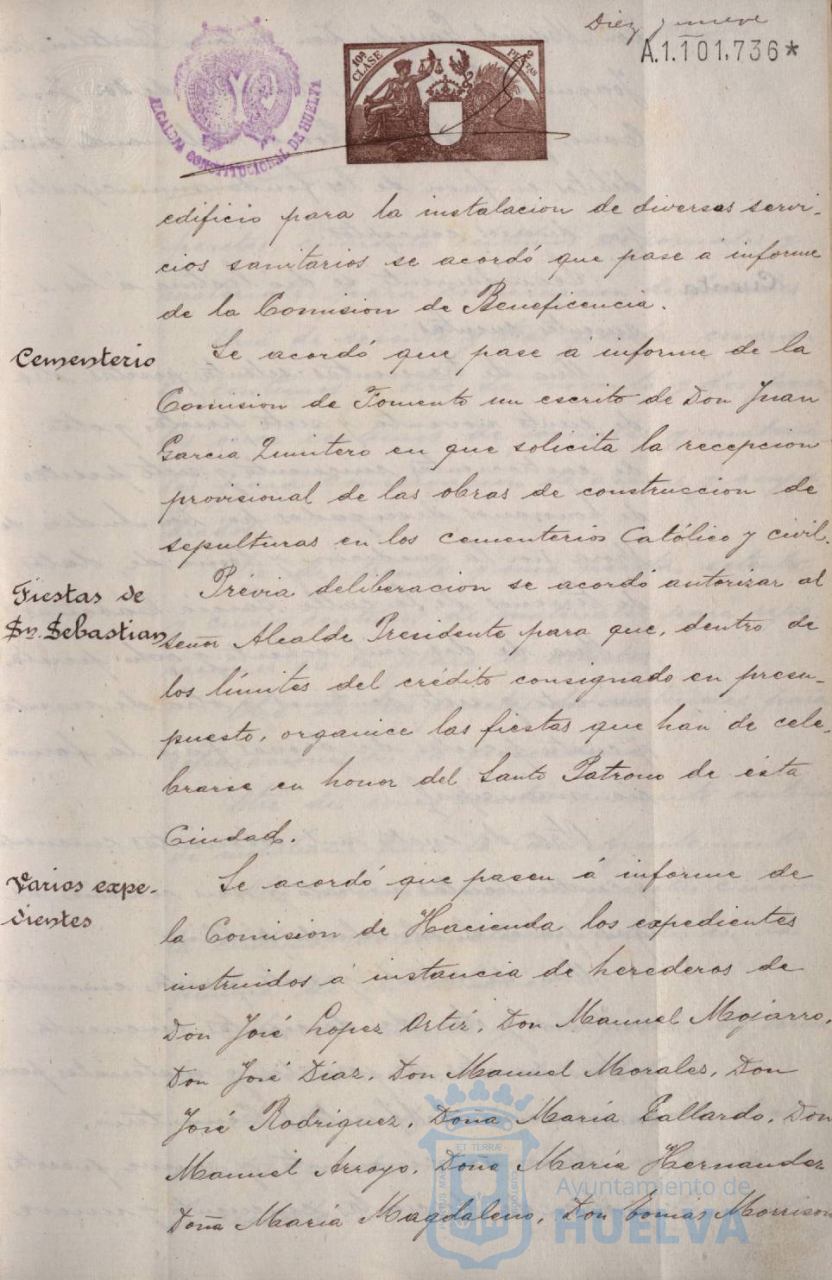 Diez y nueve
A.1.101,736*
10ª CLASE
2 PESETAS
ALCALDIA CONSTITUCIONAL DE HUELVA
edificio para la instalacion de diversos servi-
cios sanitarios se acordó que pase á informe
de la Comision de Beneficencia.
Cementerio
Se acordó que pase á informe de la
Comision de Fomento un escrito de Don Juan
Garcia Quintero en que solicita la recepcion
provisional de las obras de construccion de
sepulturas en los cementerios Católico y civil.
Fiestas de
Sn. Sebastian
Prévia deliberacion se acordó autorizar al
Señor Alcalde Presidente para que, dentro de
los límites del crédito consignado en presu-
puesto, organice las fiestas que han de cele-
brarse en honor del Santo Patrono de ésta
Ciudad.
Varios expe-
dientes
Se acordó que pasen á informe de
la Comision de Hacienda los expedientes
instruidos á instancia de herederos de
Don José Lopez Ortiz, Don Manuel Mojarro,
Don José Díaz, Don Manuel Morales, Don
José Rodriguez, Doña María Gallardo, Don
Manuel Arroyo, Doña María Hernandez
Doña María Magdaleno, Don Tomas Morrison
Ayuntamiento de
HUELVA